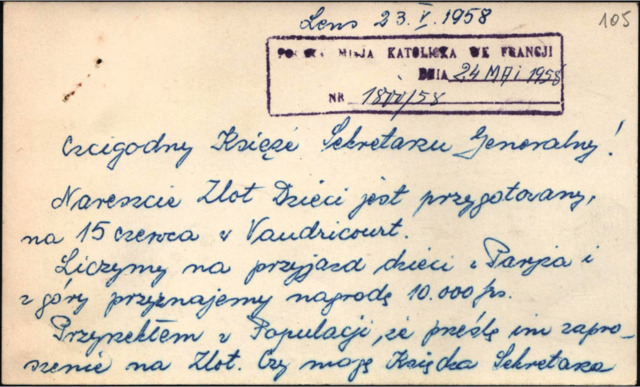 Lens 23.V.1958
105
POLSKA MISJA KATOLICKA WE FRANCJI
DNIA 24 MAI 1958
NR 1800/58
Czcigodny Księże Sekretarzu Generalny!
Nareszcie Zlot Dzieci jest przygotowany,
na 15 czerwca w Vaudricourt.
Liczymy na przyjazd dzieci z Paryża i
z góry przyznajemy nagrodę 10.000 frs.
Przyrzekłem z Populacji, że prześlę im zapro-
szenie na Zlot. Czy mogę Księdza Sekretarza